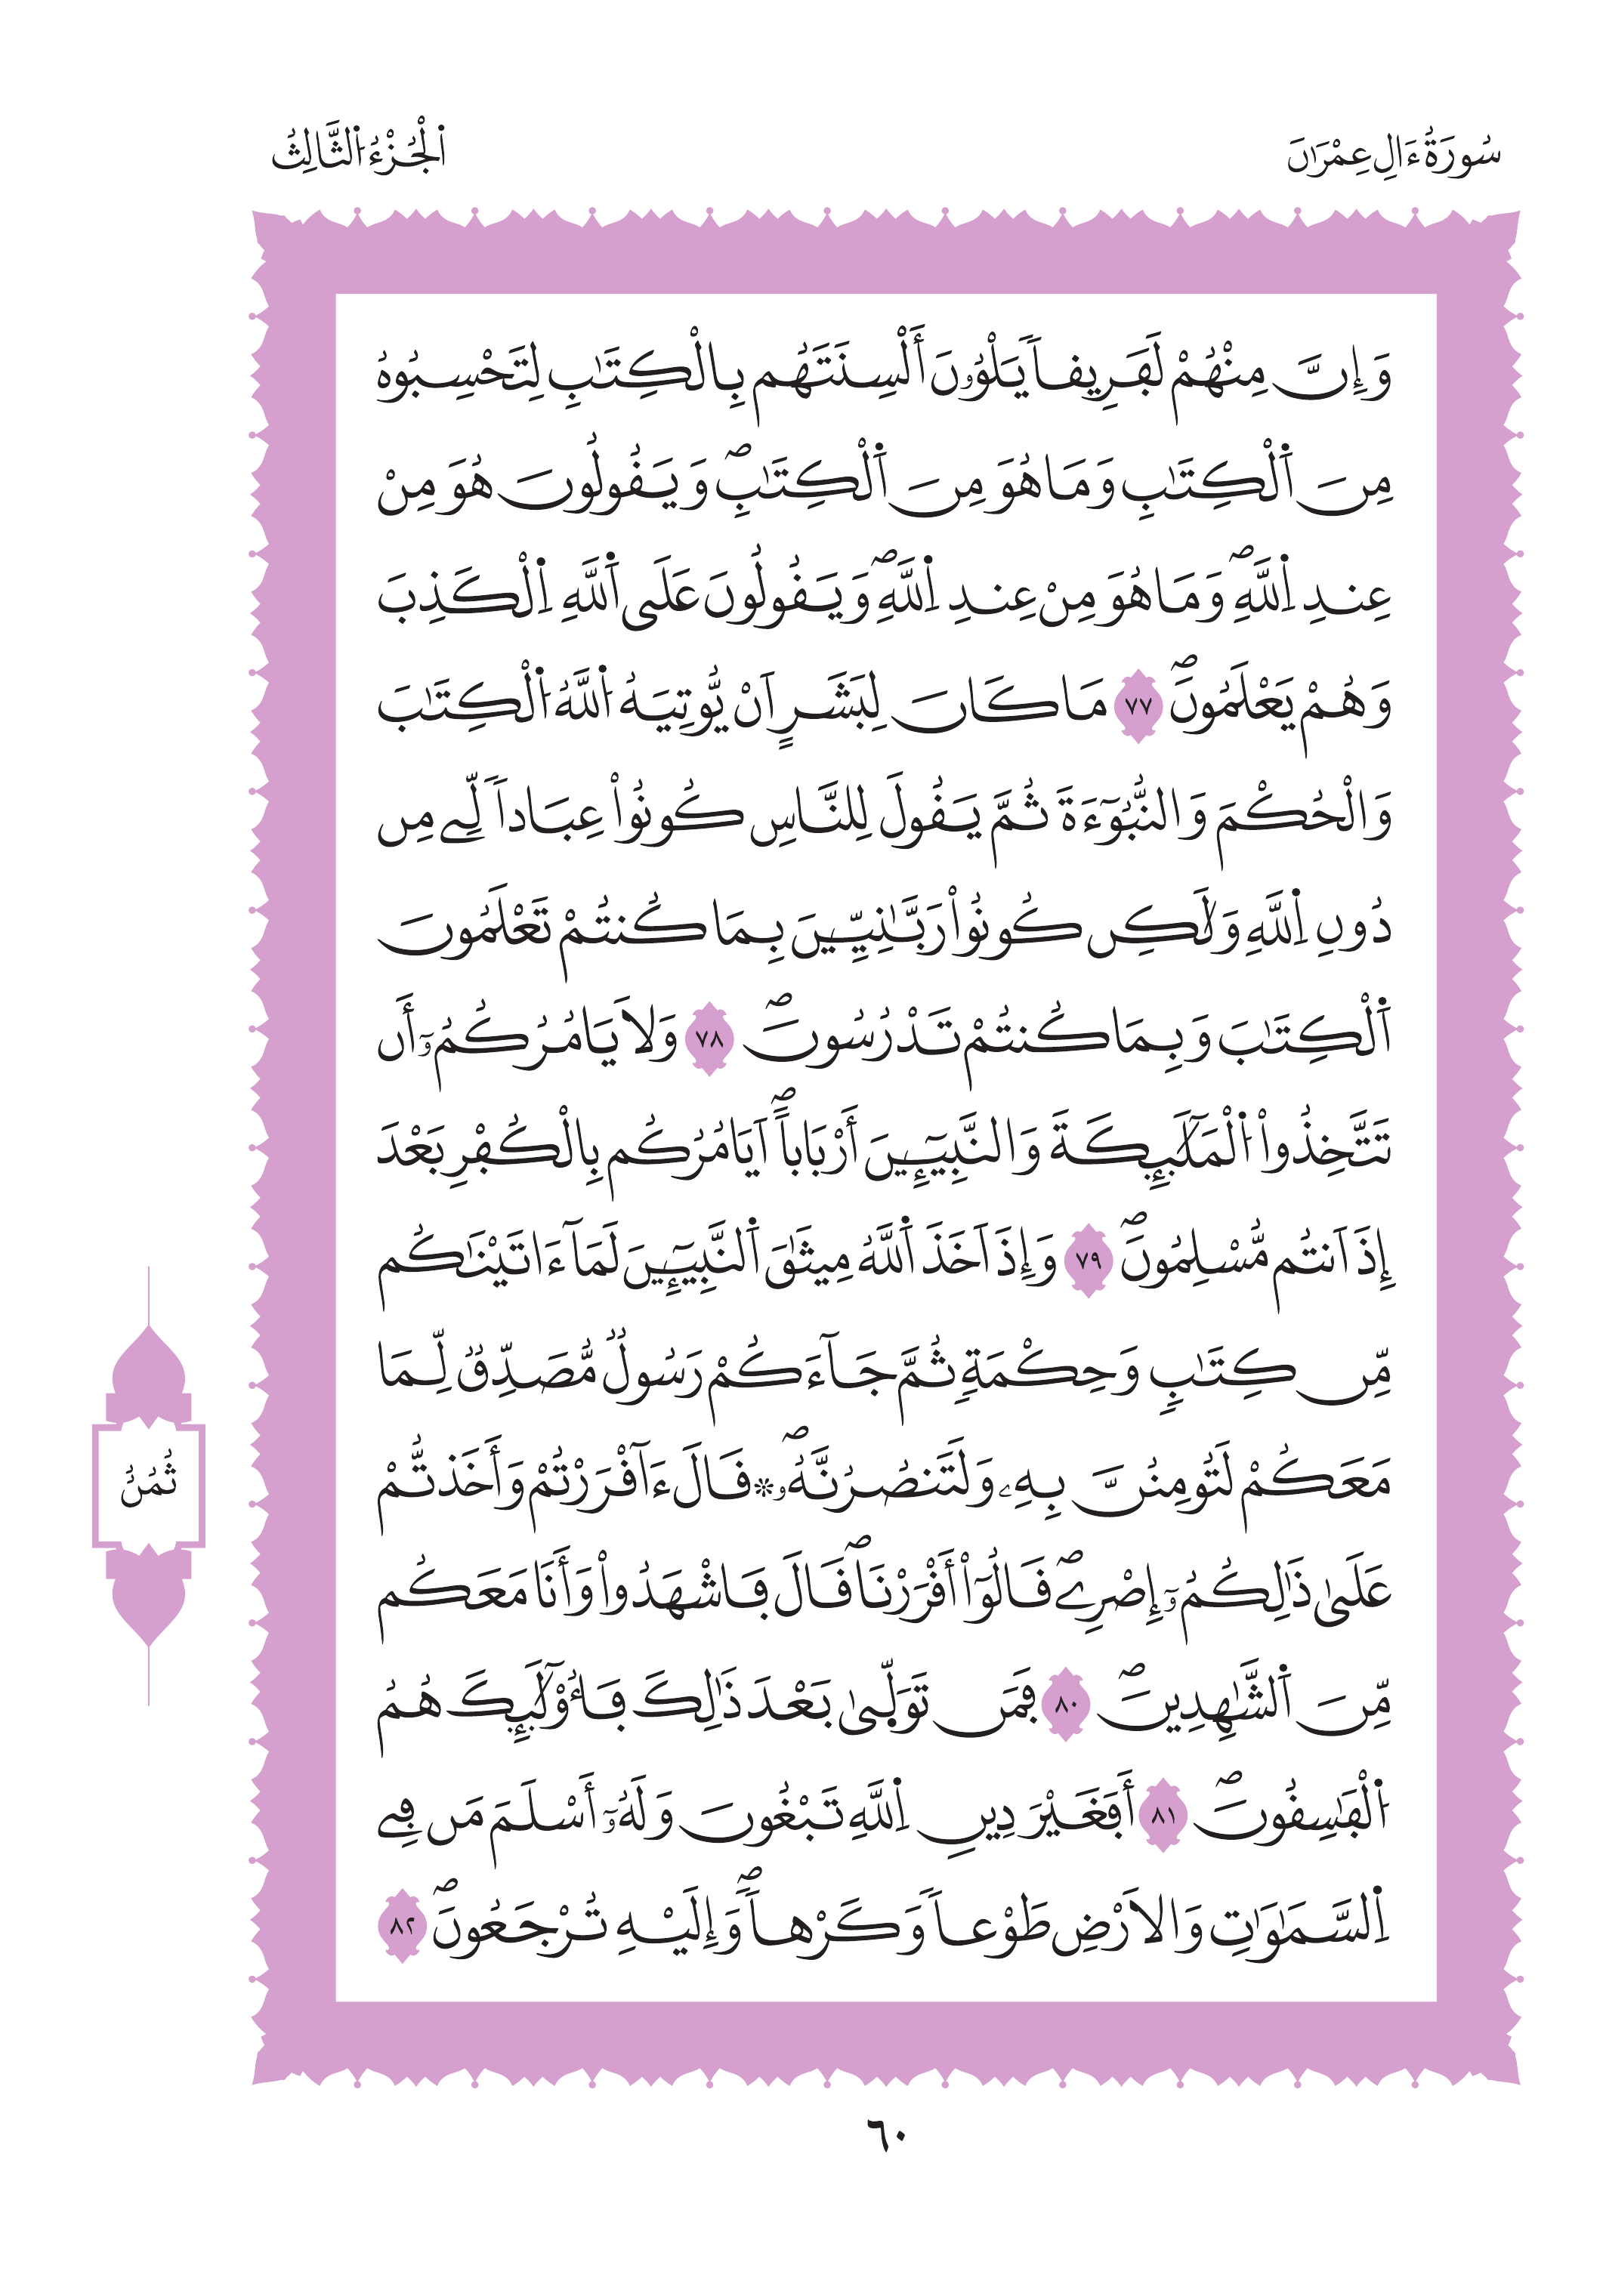 سُورَةُ ءَالِ عِمْرَٰنَ
اَ۬لْجُزْءُ اُ۬لثَّالِثُ
وَإِنَّ مِنْهُمْ لَفَرِيقاٗ يَلْوُۥنَ أَلْسِنَتَهُم بِالْكِتَٰبِ لِتَحْسِبُوهُ
مِنَ اَ۬لْكِتَٰبِ وَمَا هُوَ مِنَ اَ۬لْكِتَٰبِۖ وَيَقُولُونَ هُوَ مِنْ
عِندِ اِ۬للَّهِۖ وَمَا هُوَ مِنْ عِندِ اِ۬للَّهِۖ وَيَقُولُونَ عَلَى اَ۬للَّهِ اِ۬لْكَذِبَ
وَهُمْ يَعْلَمُونَۖ ٧٧ مَا كَانَ لِبَشَرٍ اَنْ يُّوتِيَهُ اُ۬للَّهُ اُ۬لْكِتَٰبَ
وَالْحُكْمَ وَالنُّبُوٓءَةَ ثُمَّ يَقُولَ لِلنَّاسِ كُونُواْ عِبَاداٗ لِّے مِن
دُونِ اِ۬للَّهِ وَلَٰكِن كُونُواْ رَبَّٰنِيِّـۧنَ بِمَا كُنتُمْ تَعْلَمُونَ
اَ۬لْكِتَٰبَ وَبِمَا كُنتُمْ تَدْرُسُونَۖ ٧٨ وَلَا يَامُرُكُمُۥٓ أَن
تَتَّخِذُواْ اُ۬لْمَلَٰٓئِكَةَ وَالنَّبِيٓـِٕينَ أَرْبَاباًۖ اَيَامُرُكُم بِالْكُفْرِ بَعْدَ
إِذَ اَنتُم مُّسْلِمُونَۖ ٧٩ وَإِذَ اَخَذَ اَ۬للَّهُ مِيثَٰقَ اَ۬لنَّبِيٓـِٕينَ لَمَآ ءَاتَيْنَٰكُم
مِّن كِتَٰبٖ وَحِكْمَةٖ ثُمَّ جَآءَكُمْ رَسُولٞ مُّصَدِّقٞ لِّمَا
مَعَكُمْ لَتُومِنُنَّ بِهِۦ وَلَتَنصُرُنَّهُۥۖ ۞ قَالَ ءَآقْرَرْتُمْ وَأَخَذتُّمْ
عَلَىٰ ذَٰلِكُمُۥٓ إِصْرِےۖ قَالُوٓاْ أَقْرَرْنَاۖ قَالَ فَاشْهَدُواْ وَأَنَا مَعَكُم
مِّنَ اَ۬لشَّٰهِدِينَۖ ٨٠ فَمَن تَوَلَّىٰ بَعْدَ ذَٰلِكَ فَأُوْلَٰٓئِكَ هُمُ
اُ۬لْفَٰسِقُونَۖ ٨١ أَفَغَيْرَ دِينِ اِ۬للَّهِ تَبْغُونَ وَلَهُۥٓ أَسْلَمَ مَن فِے
اِ۬لسَّمَٰوَٰتِ وَالَارْضِ طَوْعاٗ وَكَرْهاٗۖ وَإِلَيْهِ تُرْجَعُونَۖ ٨٢
ثُمُنُ
٦٠